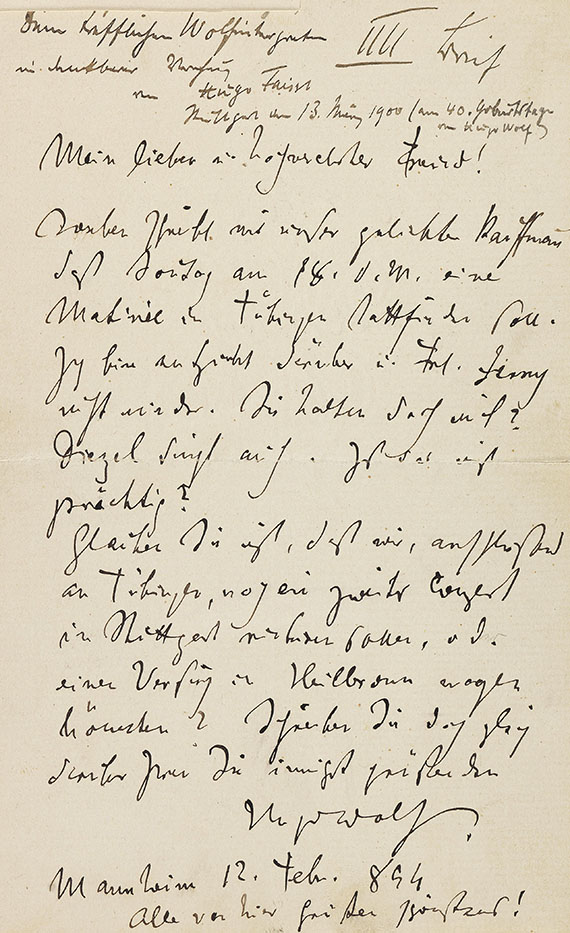 Dem trefflichen Wolfinterpreten
in dankbarer Verehrung
von Hugo Faisst
Stuttgart den 13. März 1900 (am 40. Geburtstage
von Hugo Wolf)
IIII Brief
Mein lieber u. hochverehrter Freund!
Soeben schreibt mir unser geliebter Kauffmann
daß Sonntag am 18. d. M. eine
Matinée in Tübingen stattfinden soll.
Ich bin entzückt darüber u. Frl. Zerny
nicht minder. Sie halten doch mit?
Diezel singt auch. Ist das nicht
prächtig?
Glauben Sie nicht, daß wir, anschließend
an Tübingen, noch ein zweites Conzert
in Stuttgart riskiren sollen, od.
einen Versuch in Heilbronn wagen
könnten? Schreiben Sie doch gleich
darüber Ihren Sie innigst grüßenden
Hugo Wolf.
Mannheim 12. Febr. 894
Alle von hier grüßen schönstens!